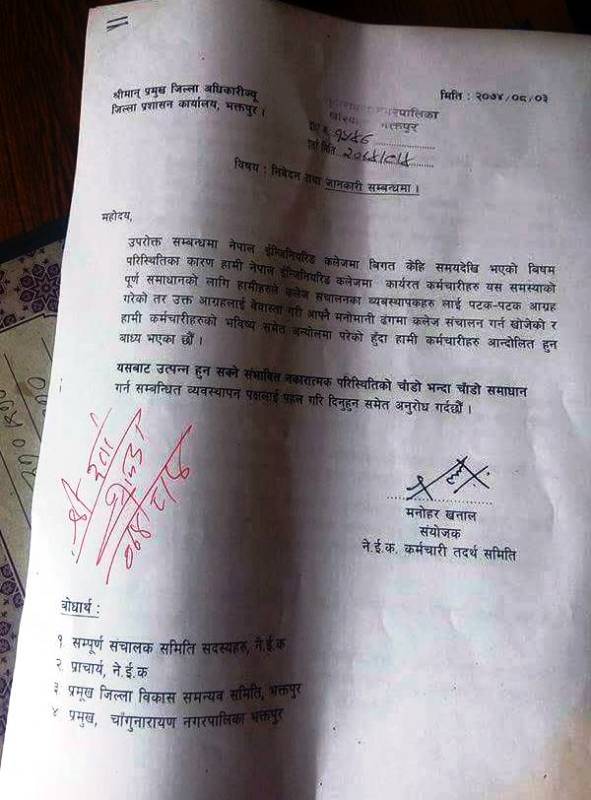 श्रीमान् प्रमुख जिल्ला अधिकारीज्यू
जिल्ला प्रशासन कार्यालय, भक्तपुर ।
मिति : २०७४/०८/०३
नगरपालिका
भक्तपुर
विषय : निवेदन तथा जानकारी सम्बन्धमा ।
महोदय,
उपरोक्त सम्बन्धमा नेपाल ईन्जिनियरिङ कलेजमा बिगत केहि समयदेखि भएको बिषम
परिस्थितिका कारण हामी नेपाल ईन्जिनियरिङ कलेजमा कार्यरत कर्मचारीहरु यस समस्याको
पूर्ण समाधानको लागि हामीहरुले कलेज संचालनका ब्यबस्थापकहरु लाई पटक-पटक आग्रह
गरेको तर उक्त आग्रहलाई बेवास्ता गरी आफ्नै मनोमानी ढंगमा कलेज संचालन गर्न खोजेको र
हामी कर्मचारीहरुको भविष्य समेत अन्योलमा परेको हुँदा हामी कर्मचारीहरु आन्दोलित हुन
बाध्य भएका छौं ।
यसबाट उत्पन्न हुन सक्ने संभावित नकारात्मक परिस्थितिको चाँडो भन्दा चाँडो समाधान
गर्न सम्बन्धित व्यवस्थापन पक्षलाई पहल गरि दिनुहुन समेत अनुरोध गर्दछौं ।
मनोहर खनाल
संयोजक
ने.ई.क. कर्मचारी तदर्थ समिति
बोधार्थ :
१ सम्पूर्ण संचालक समिति सदस्यहरु, ने.ई.क
२. प्राचार्य, ने.ई.क
३ प्रमूख जिल्ला विकास समन्यव समिति, भक्तपुर
४ प्रमुख, चाँगुनारायण नगरपालिका भक्तपुर